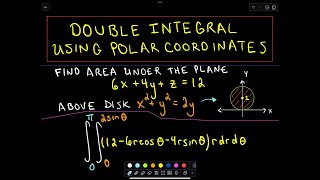 DOUBLE INTEGRAL
USING POLAR COORDINATES
FIND AREA UNDER THE PLANE
6x + 4y + z = 12
ABOVE DISK x² + y² = 2y →
Y
1
X
π 2sinθ
∫ ∫ (12 - 6rcosθ - 4rsinθ) r dr dθ
0 0